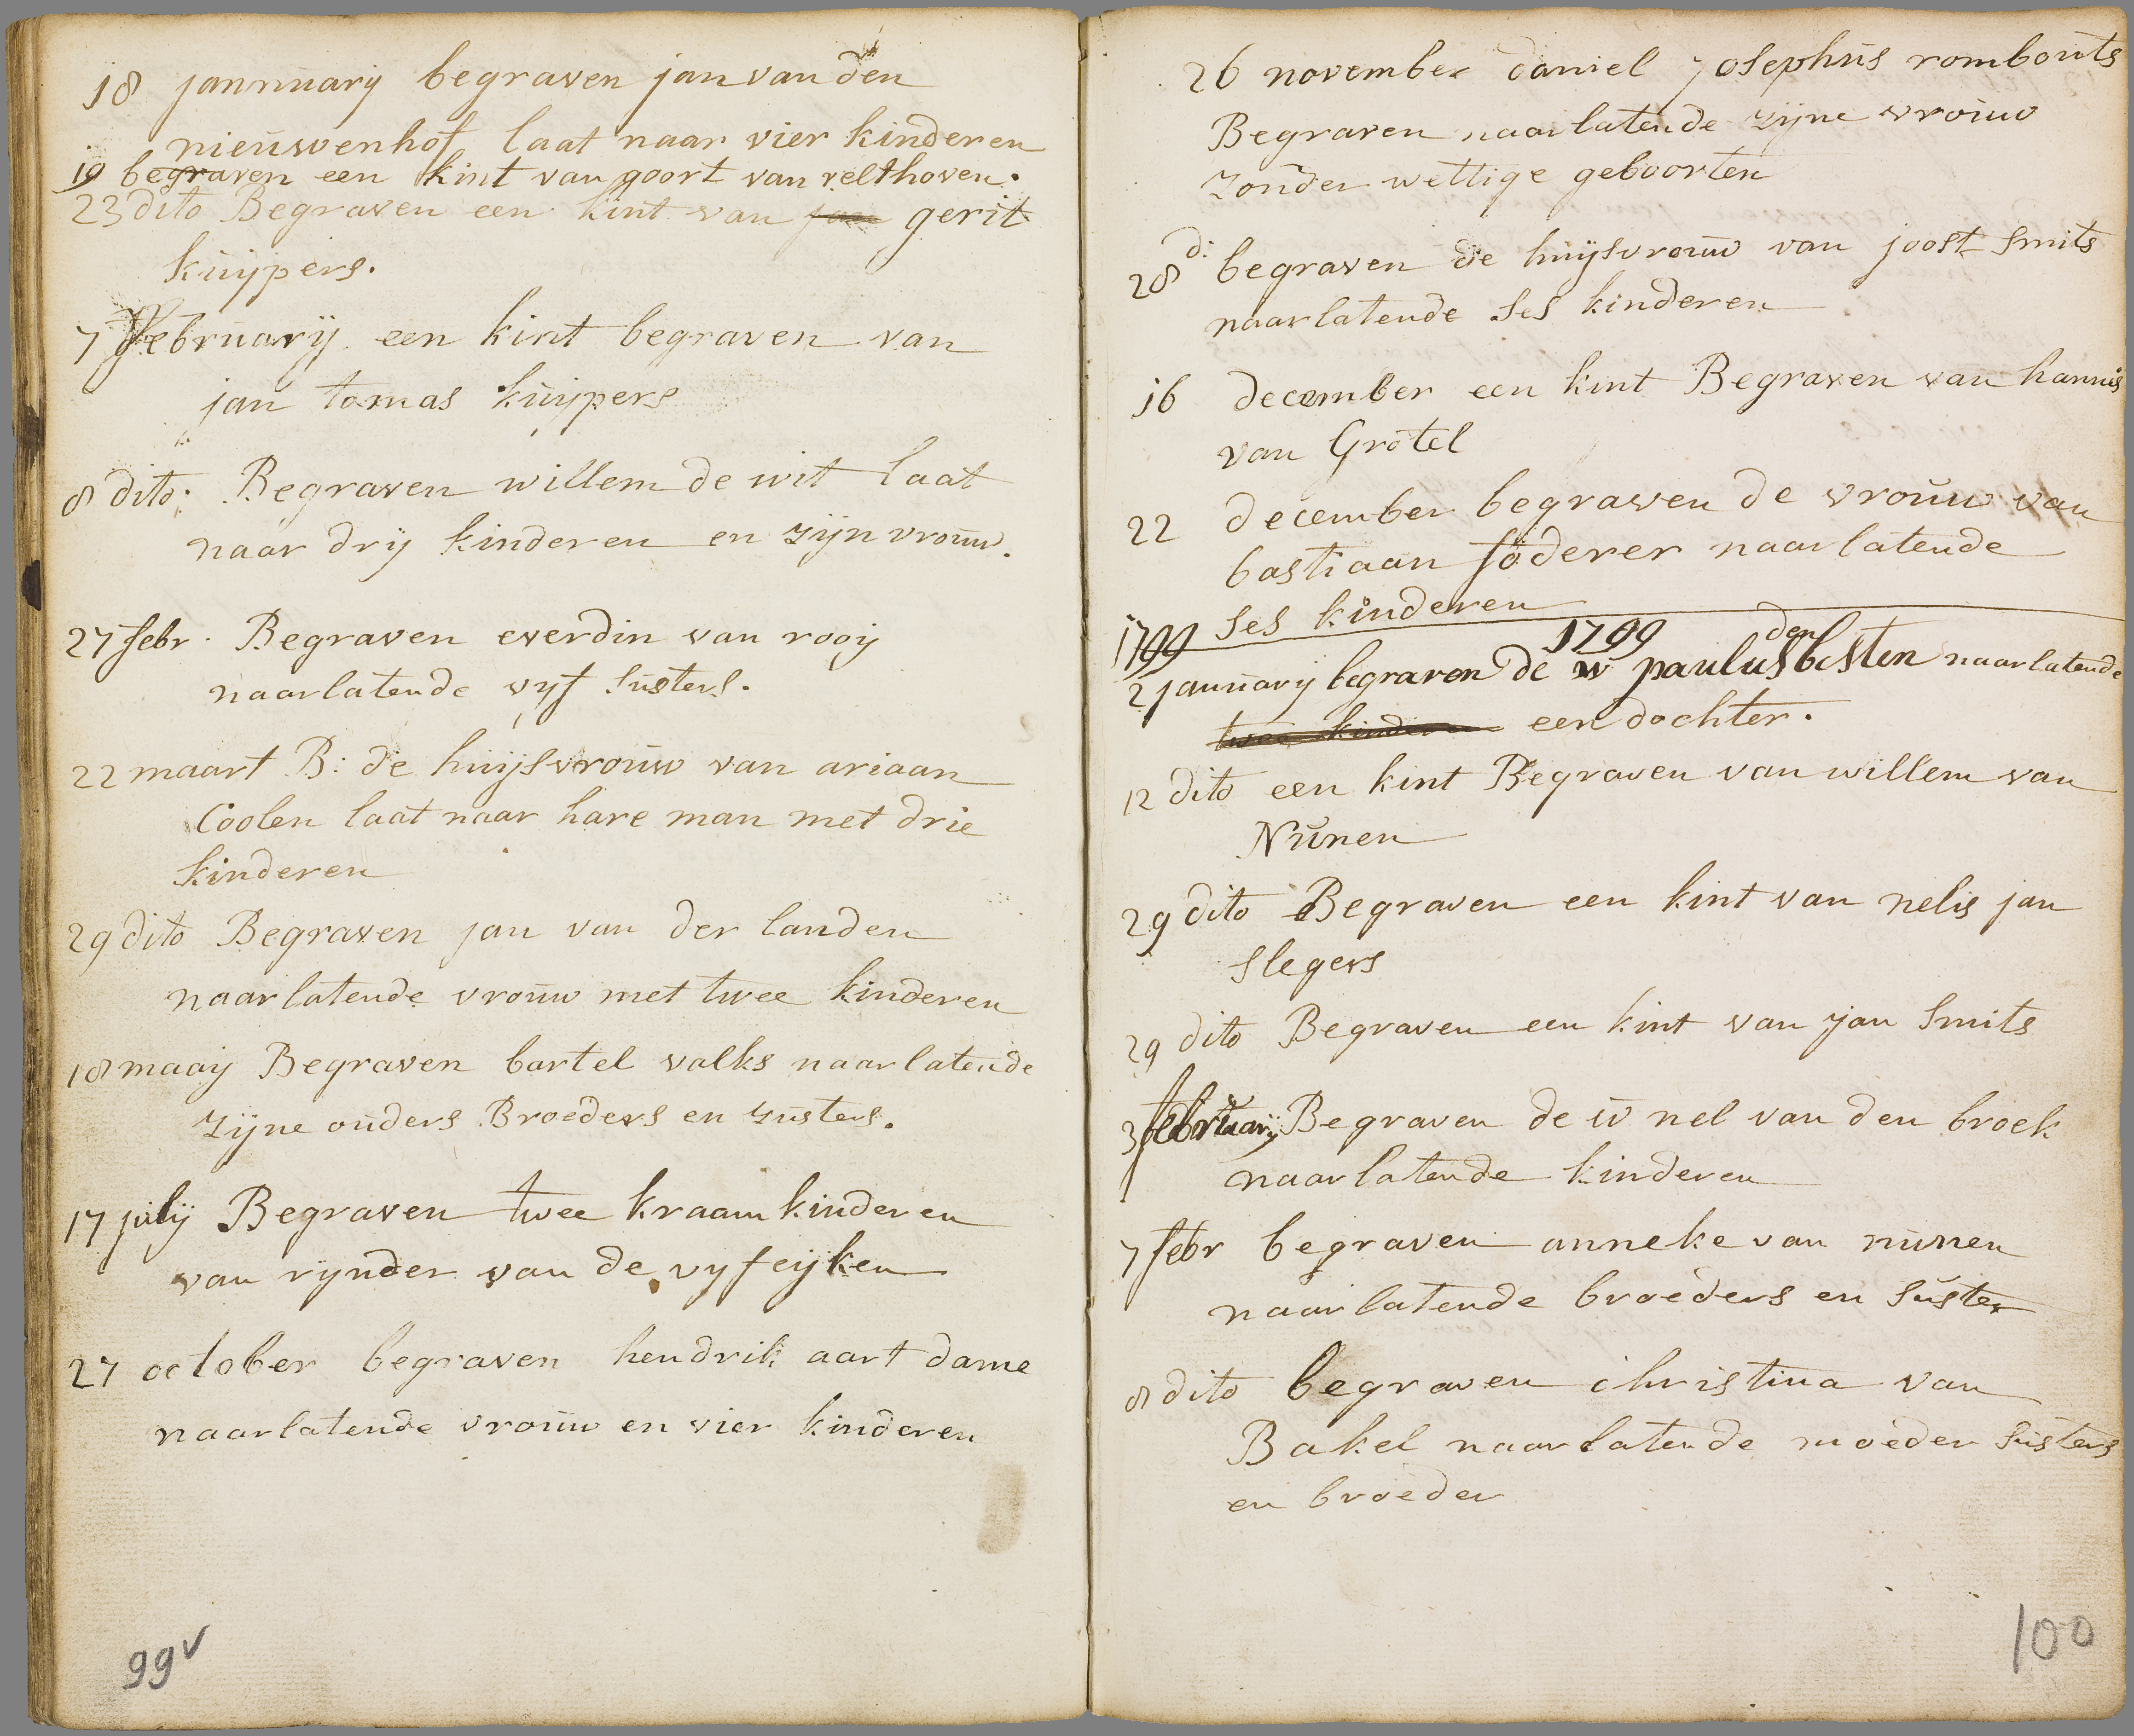 18 jannuarij begraven jan van den
nieuwenhof laat naar vier kinderen
19 begraven een kint van goort van velthoven.
23 dito Begraven een kint van jan gerit
kuijpers.
7 february een kint begraven van
jan tomas kuijpers
8 dito: Begraven willem de wit laat
naar drij kinderen en zijn vrouw.
27 febr. Begraven everdin van rooij
naarlatende vyf susters.
22 maart B: de huijsvrouw van ariaan
Coolen laat naar hare man met drie
kinderen
29 dito Begraven jan van der landen
naarlatende vrouw met twee kinderen
18 maaij Begraven bartel valks naarlatende
zijne ouders Broeders en zusters.
17 julij Begraven twee kraam kinderen
van rynder van de vyfeijken
27 october begraven hendrik aart dame
naarlatende vrouw en vier kinderen
99v
26 november daniel josephus rombouts
Begraven naarlatende zijne vrouw
zonder wettige geboorten
28 d: begraven de huijsvrouw van joost smits
naarlatende ses kinderen
16 december een kint Begraven van hannis
van Grotel
22 december begraven de vrouw van
bastiaan foderer naarlatende
ses kinderen
1799 1799
2 januarij begraven de w paulus den besten naarlatende
twee kinderen een dochter.
12 dito een kint Begraven van willem van
Nunen
29 dito Begraven een kint van nelis jan
slegers
29 dito Begraven een kint van jan Smits
3 februarij Begraven de w nel van den broek
naarlatende kinderen
7 febr begraven anneke van nunen
naarlatende broeders en suster
8 dito begraven christina van
Bakel naarlatende moeder susters
en broeder
100